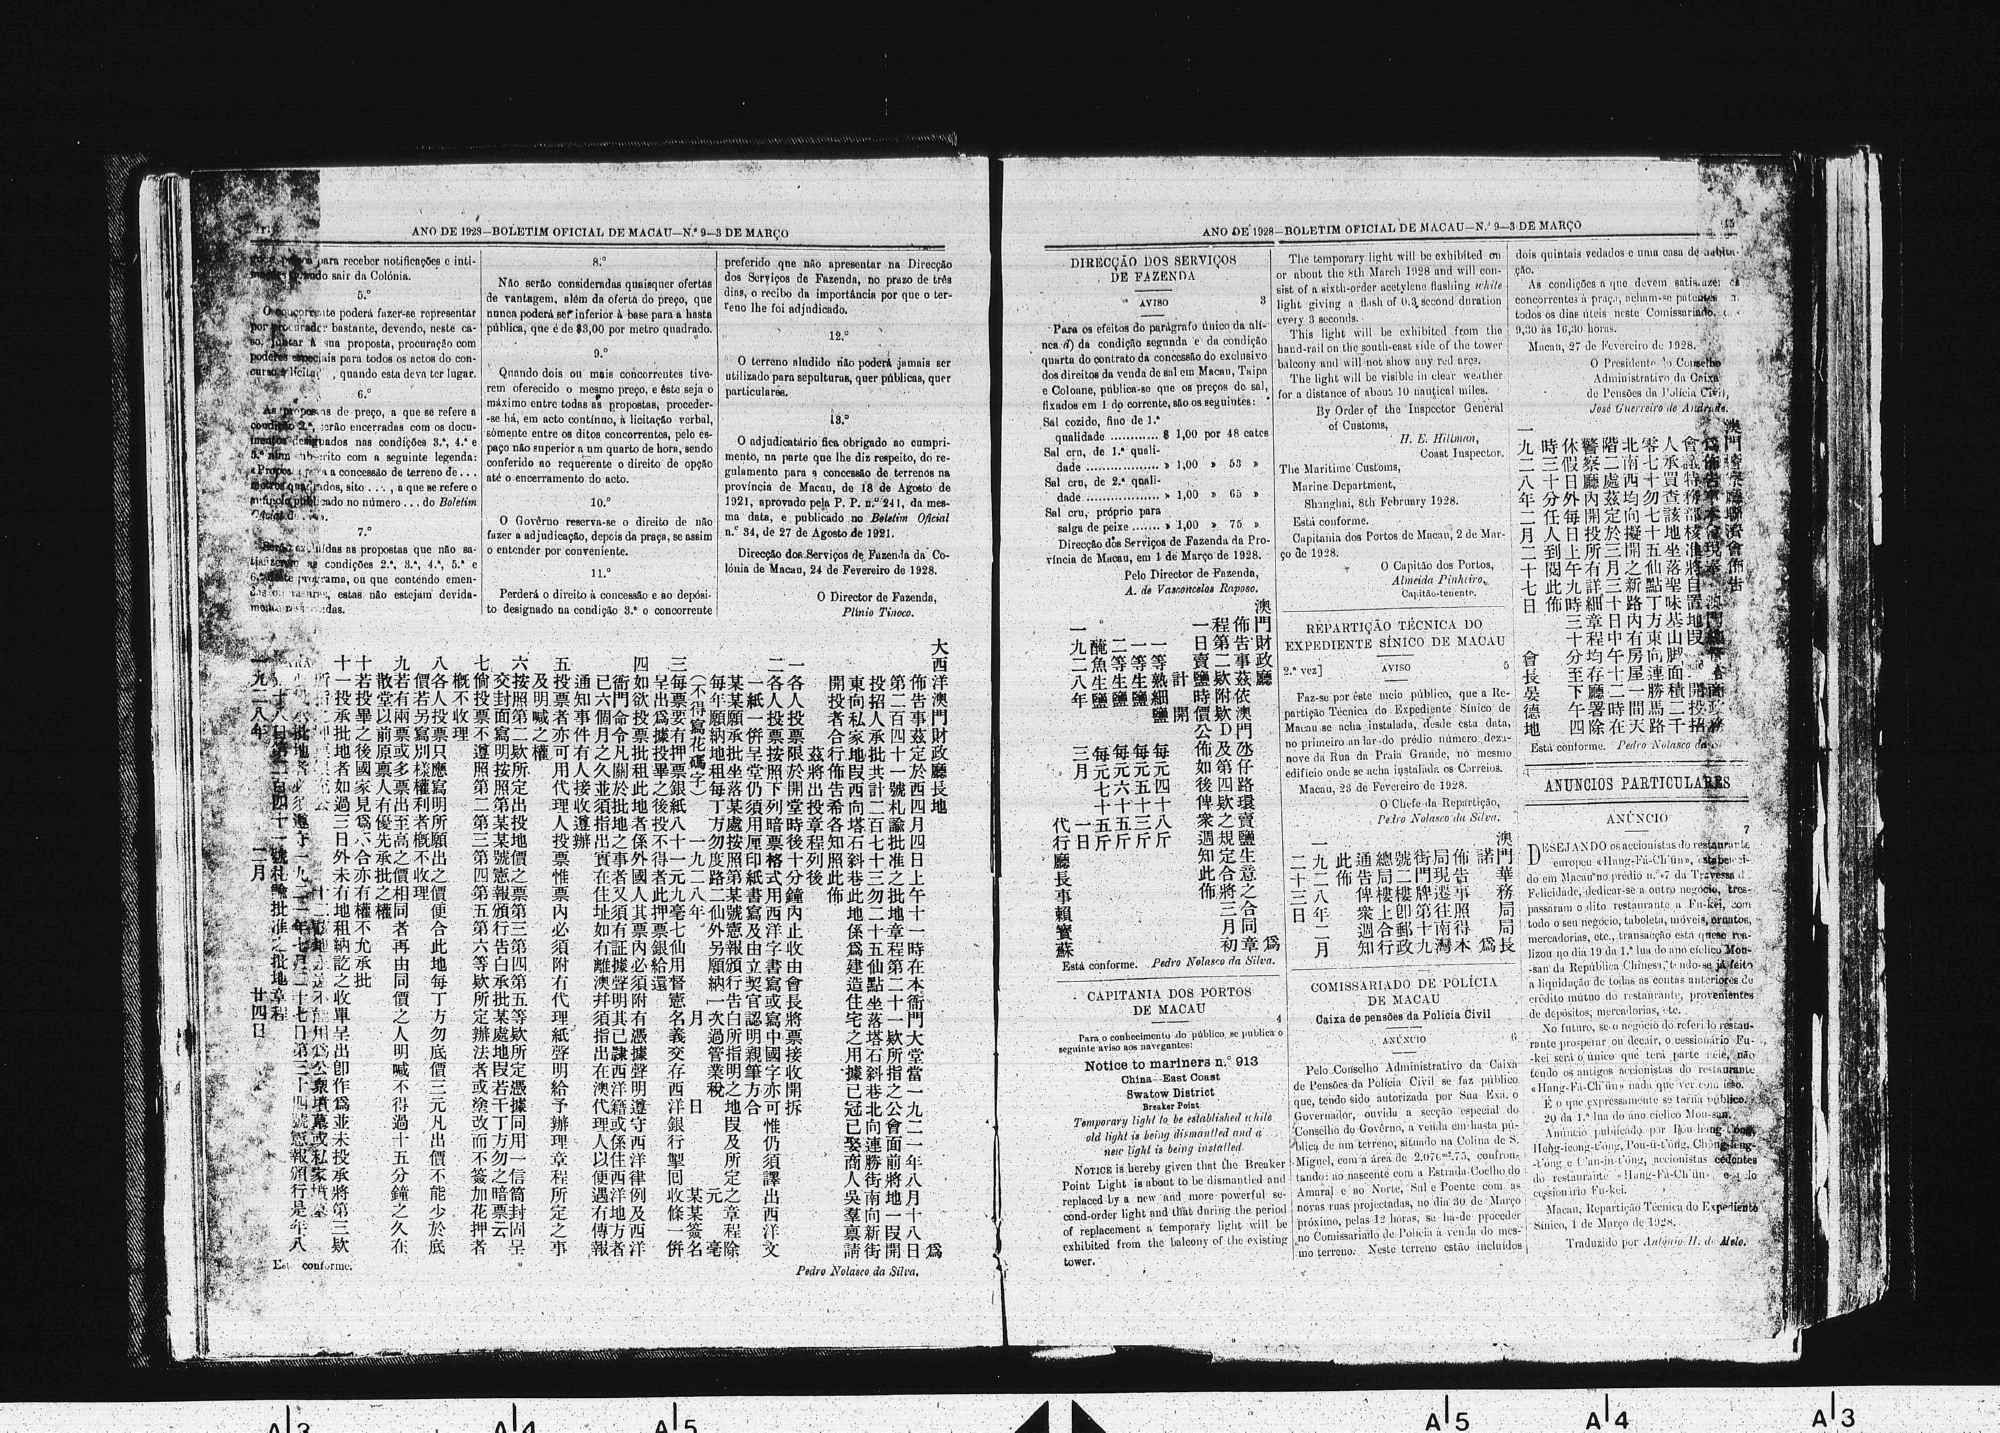 ANO DE 1928—BOLETIM OFICIAL DE MACAU—N.º 9—3 DE MARÇO
para receber notificações e inti-
sair da Colónia.
5.º
poderá fazer-se representar
bastante, devendo, neste ca-
sua proposta, procuração com
para todos os actos do con-
quando esta deva ter lugar.
6.º
de preço, a que se refere a
condição 2.ª, serão encerradas com os docu-
nas condições 3.ª, 4.ª e
com a seguinte legenda:
a concessão de terreno de...
sito ..., a que se refere o
no número ... do Boletim
7.º
as propostas que não sa-
condições 2.ª, 3.ª, 4.ª, 5.ª e
ou que contendo emen-
estas não estejam devida-
8.º
Não serão consideradas quaisquer ofertas
de vantagem, além da oferta do preço, que
nunca poderá ser inferior à base para a hasta
pública, que é de $3,00 por metro quadrado.
9.º
Quando dois ou mais concorrentes tive-
rem oferecido o mesmo preço, e êste seja o
máximo entre todas as propostas, proceder-
-se há, em acto contínuo, à licitação verbal,
sómente entre os ditos concorrentes, pelo es-
paço não superior a um quarto de hora, sendo
conferido ao requerente o direito de opção
até o encerramento do acto.
10.º
O Govêrno reserva-se o direito de não
fazer a adjudicação, depois da praça, se assim
o entender por conveniente.
11.º
Perderá o direito à concessão e ao depósi-
to designado na condição 3.ª o concorrente
preferido que não apresentar na Direcção
dos Serviços de Fazenda, no prazo de três
dias, o recibo da importância por que o ter-
reno lhe foi adjudicado.
12.º
O terreno aludido não poderá jamais ser
utilizado para sepulturas, quer públicas, quer
particulares.
13.º
O adjudicatário fica obrigado ao cumpri-
mento, na parte que lhe diz respeito, do re-
gulamento para a concessão de terrenos na
província de Macau, de 18 de Agosto de
1921, aprovado pela P. P. n.º 241, da mes-
ma data, e publicado no Boletim Oficial
n.º 34, de 27 de Agosto de 1921.
Direcção dos Serviços de Fazenda da Co-
lónia de Macau, 24 de Fevereiro de 1928.
O Director de Fazenda,
Plínio Tinoco.
大西洋澳門財政廳長地 爲
佈告事茲定於西四月四日上午十一時在本衙門大堂當一九二一年八月十八日
第二百四十一號札諭批准之批地章程第二十一欵所指之公會面前將地一段開
投招人承批共計二百七十三勿二十五仙點坐落塔石斜巷北向連勝街南向新街
東向私家地段西向塔石斜巷此地係爲建造住宅之用據已冠已娶商人吳羣禀請
開投者合行佈告希各知照此佈
茲將出投章程列後
一各人投票限於開堂時後十分鐘內止收由會長將票接收開拆
二各人投票按照下列暗票格式用西洋字書寫或寫中國字亦可惟仍須譯出西洋文
一紙一併呈堂仍須用厘印紙書寫及由立契官認明親筆方合
某某願承批坐落某處按照第某號憲報頒行告白所指明之地段及所定之章程除
每年願納地租每丁方勿度路二仙外另願納一次過管業稅 元 毫
(不得寫花碼字) 一九二八年 月 日 某某簽名
三每票要有押票銀紙八十一元九毫七仙用督憲名義交存西洋銀行掣囘收條一併
呈出爲據投畢之後投不得者此押票銀給還
四如欲投票批租此地者係外國人其票內必須附有憑據聲明遵守西洋律例及西洋
衙門命令凡關於批地之事者又須有証據聲明其已隸西洋籍或係住西洋地方者
已六個月之久並須指出實在住址如有離澳幷須指出在澳代理人以便遇有傳報
通知事件有人接收遵辦
五投票者亦可用代理人投票惟票內必須附有代理紙聲明給予辦理章程所定之事
及明喊之權
六按照第二欵所定出投地價之票第三第四第五等欵所定憑據同用一信筒封固呈
交封面寫明按照第某某號憲報頒行告白承批某處地段若干丁方勿之暗票云
七倘投票不遵照第二第三第四第五第六等欵所定辦法者或塗改而不簽加花押者
概不收理
八各人投票只應寫明所願出之價便合此地每丁方勿底價三元凡出價不能少於底
價若另寫別樣權利者概不收理
九若有兩票或多票出至高之價相同者再由同價之人明喊不得過十五分鐘之久在
散堂以前原禀人有優先承批之權
十若投畢之後國家見爲不合亦有權不允承批
十一投承批地者如過三日外未有地租納訖之收單呈出卽作爲並未投承將第三欵
一九二八年 二月 廿四日
conforme.
Pedro Nolasco da Silva.
ANO DE 1928—BOLETIM OFICIAL DE MACAU—N.º 9—3 DE MARÇO
DIRECÇÃO DOS SERVIÇOS
DE FAZENDA
AVISO 3
Para os efeitos do parágrafo único da alí-
nea d) da condição segunda e da condição
quarta do contrato da concessão do exclusivo
dos direitos da venda de sal em Macau, Taipa
e Coloane, publica-se que os preços de sal,
fixados em 1 do corrente, são os seguintes:
Sal cozido, fino de 1.ª
qualidade ............ $ 1,00 por 48 cates
Sal cru, de 1.ª quali-
dade .................. » 1,00 » 53 »
Sal cru, de 2.ª quali-
dade .................. » 1,00 » 65 »
Sal cru, próprio para
salga de peixe ....... » 1,00 » 75 »
Direcção dos Serviços de Fazenda da Pro-
víncia de Macau, em 1 de Março de 1928.
Pelo Director de Fazenda,
A. de Vasconcelos Raposo.
澳門財政廳 爲
佈告事茲依澳門氹仔路環賣鹽生意之合同章
程第二欵附欵D及第四欵之規定合將三月初
一日賣鹽時價公佈如後俾衆週知此佈
計開
一等熟細鹽 每元四十八斤
一等生鹽 每元五十三斤
二等生鹽 每元六十五斤
醃魚生鹽 每元七十五斤
一九二八年 三月 一日
代行廳長事賴寶蘇
Está conforme. Pedro Nolasco da Silva.
CAPITANIA DOS PORTOS
DE MACAU
4
Para o conhecimento do público se publica o
seguinte aviso aos navegantes:
Notice to mariners n.º 913
China—East Coast
Swatow District
Breaker Point
Temporary light to be established while
old light is being dismantled and a
new light is being installed.
NOTICE is hereby given that the Breaker
Point Light is about to be dismantled and
replaced by a new and more powerful se-
cond-order light and that during the period
of replacement a temporary light will be
exhibited from the balcony of the existing
tower.
The temporary light will be exhibited on
or about the 8th March 1928 and will con-
sist of a sixth-order acetylene flashing white
light giving a flash of 0.3 second duration
every 3 seconds.
This light will be exhibited from the
hand-rail on the south-east side of the tower
balcony and will not show any red arcs.
The light will be visible in clear weather
for a distance of about 10 nautical miles.
By Order of the Inspector General
of Customs,
H. E. Hillman,
Coast Inspector.
The Maritime Customs,
Marine Department,
Shanghai, 8th February 1928.
Está conforme.
Capitania dos Portos de Macau, 2 de Mar-
ço de 1928.
O Capitão dos Portos,
Almeida Pinheiro,
Capitão-tenente.
REPARTIÇÃO TÉCNICA DO
EXPEDIENTE SÍNICO DE MACAU
2.ª vez] AVISO 5
Faz-se por êste meio público, que a Re-
partição Técnica do Expediente Sínico de
Macau se acha instalada, desde esta data,
no primeiro andar do prédio número deza-
nove da Rua da Praia Grande, no mesmo
edifício onde se acha instalada os Correios.
Macau, 23 de Fevereiro de 1928.
O Chefe da Repartição,
Pedro Nolasco da Silva.
澳門華務局局長
諾 爲
佈告事照得本
局現遷往南灣
街門牌第十九
號二樓卽郵政
總局樓上合行
通告俾衆週知
此佈
一九二八年二月
二十三日
COMISSARIADO DE POLÍCIA
DE MACAU
Caixa de pensões da Polícia Civil
ANÚNCIO 6
Pelo Conselho Administrativo da Caixa
de Pensões da Polícia Civil se faz público
que, tendo sido autorizada por Sua Exa. o
Governador, ouvida a secção especial do
Conselho do Govêrno, a venda em hasta pú-
blica de um terreno, situado na Colina de S.
Miguel, com a área de 2.076m2.75, confron-
tando: ao nascente com a Estrada Coelho do
Amaral e ao Norte, Sul e Poente com as
novas ruas projectadas, no dia 30 de Março
próximo, pelas 12 horas, se há-de proceder
no Comissariado de Polícia à venda do mes-
mo terreno. Neste terreno estão incluídos
dois quintais vedados e uma casa de habita-
ção.
As condições a que devem satisfazer os
concorrentes à praça, acham-se patentes
todos os dias úteis neste Comissariado,
9,30 às 16,30 horas.
Macau, 27 de Fevereiro de 1928.
O Presidente do Conselho
Administrativo da Caixa
de Pensões da Polícia Civil,
José Guerreiro de Andrade.
人承買查該地坐落聖味基山脚面積二千
零七十勿七十五仙點丁方東向連勝馬路
北南西均向擬開之新路內有房屋一間天
階二處茲定於三月三十日中午十二時在
警察廳內開投所有詳細章程均存廳署除
休假日外每日上午九時三十分至下午四
時三十分任人到閱此佈
一九二八年二月二十七日 會長晏德地
Está conforme. Pedro Nolasco da
ANUNCIOS PARTICULARES
ANÚNCIO
7
DESEJANDO os accionistas do restaurante
europeu «Hang-Fá-Ch'ün», estabeleci-
do em Macau no prédio n.º 7 da Travessa da
Felicidade, dedicar-se a outro negócio, tres-
passaram o dito restaurante a Fu-kei, com
todo o seu negócio, taboleta, móveis, ornatos,
mercadorias, etc., transacção esta que se rea-
lizou no dia 19 da 1.ª lua do ano cíclico Mou-
-san da República Chinesa, tendo-se já feito
a liquidação de todas as contas anteriores de
crédito mútuo do restaurante, provenientes
de depósitos, mercadorias, etc.
No futuro, se o negócio do referido restau-
rante prosperar ou decair, o cessionário Fu-
-kei será o único que terá parte nele, não
tendo os antigos accionistas do restaurante
«Hang-Fá-Ch'ün» nada que ver com isso.
É o que expressamente se torna público.
20 da 1.ª lua do ano cíclico Mou-san.
accionistas cedentes
do restaurante «Hang-Fá-Ch'ün» e do
cessionário Fu-kei.
Macau, Repartição Técnica do Expediente
Sínico, 1 de Março de 1928.
Traduzido por António H. de Melo.
A 3
A 4
A 5
A 5
A 4
A 3